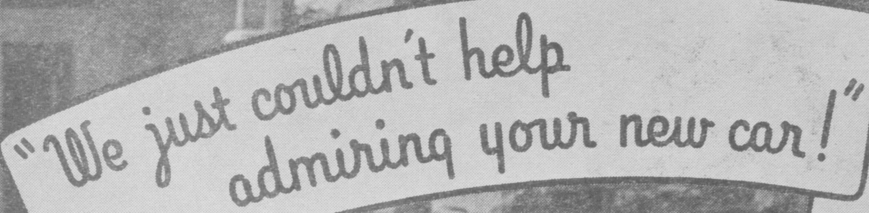 "We just couldn't help
admiring your new car!"